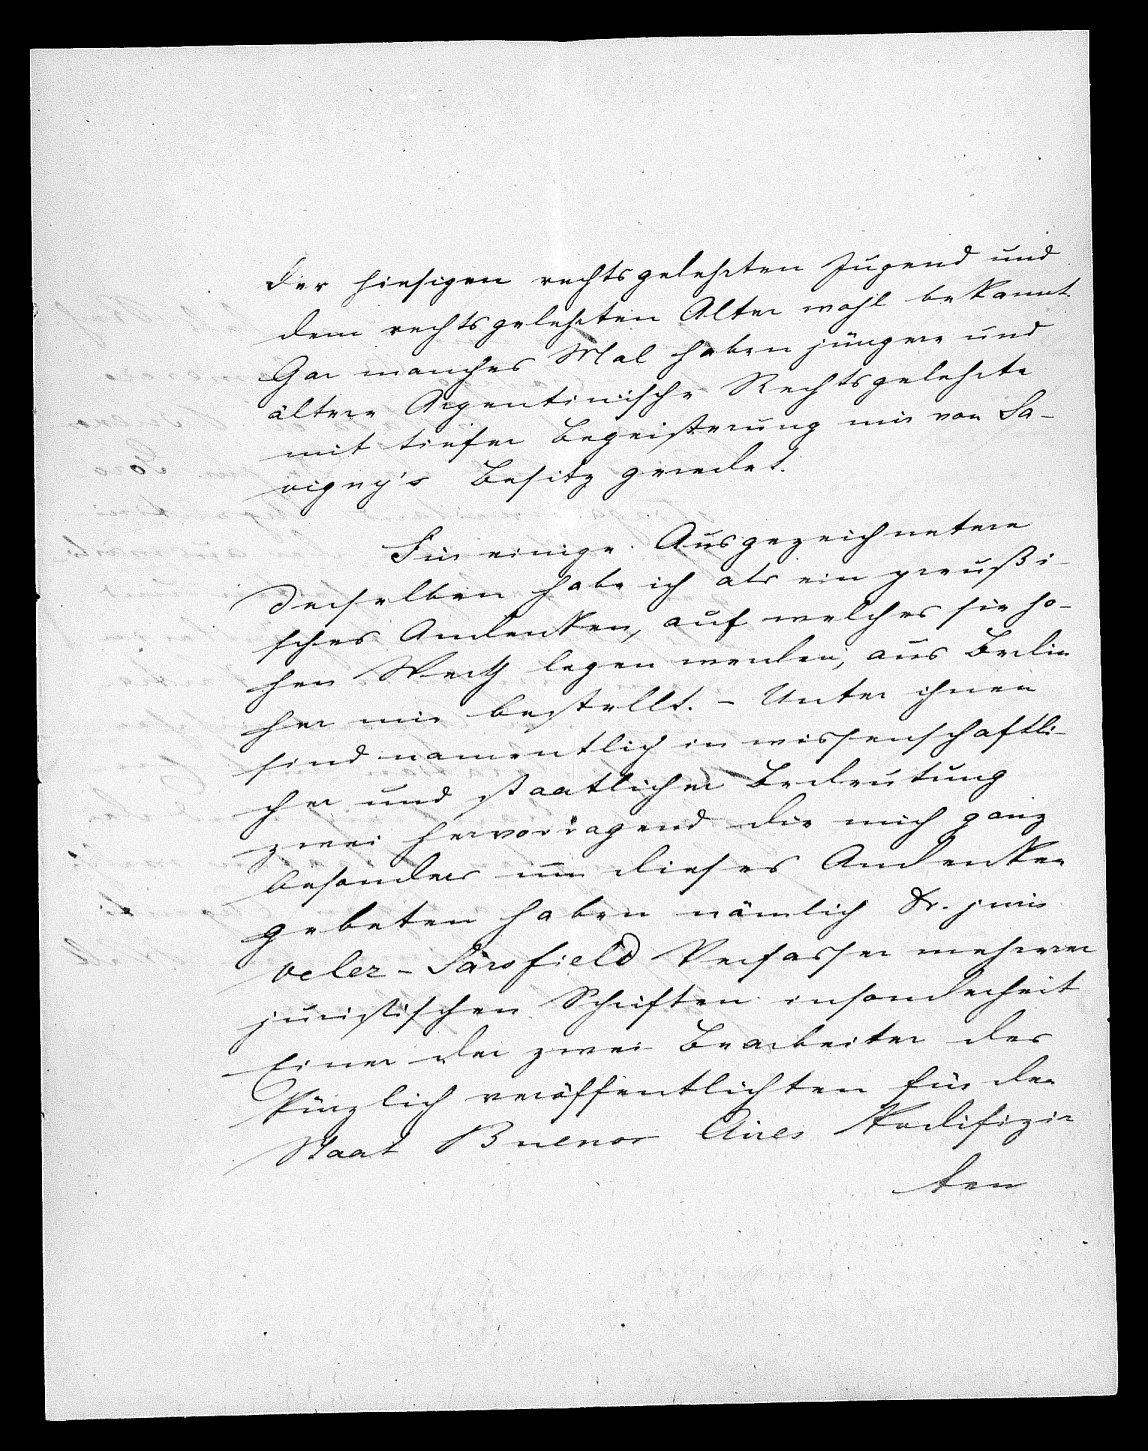 der hiesigen rechtsgelehrten Jugend und
dem rechtsgelehrten Alter wohl bekannt.
Gar manches Mal haben jüngere und
ältere Argentinische Rechtsgelehrte
mit tiefer Begeisterung mir von Sa-
vigny's Besitz geredet.
Für einige Ausgezeichnetere
derselben habe ich als ein preußi-
sches Andenken, auf welches sie ho-
hen Werth legen werden, aus Berlin
her mir bestellt. – Unter ihnen
sind namentlich in wissenschaftli-
cher und staatlicher Bedeutung
zwei hervorragend die mich ganz
besonders um dieses Andenken
gebeten haben nämlich Dr. juris
Velez-Sarsfield Verfasser mehrerer
juristischen Schriften insonderheit
Einer der zwei Bearbeiter des
kürzlich veröffentlichten für den
Staat Buenos Aires Kodifizir
ten